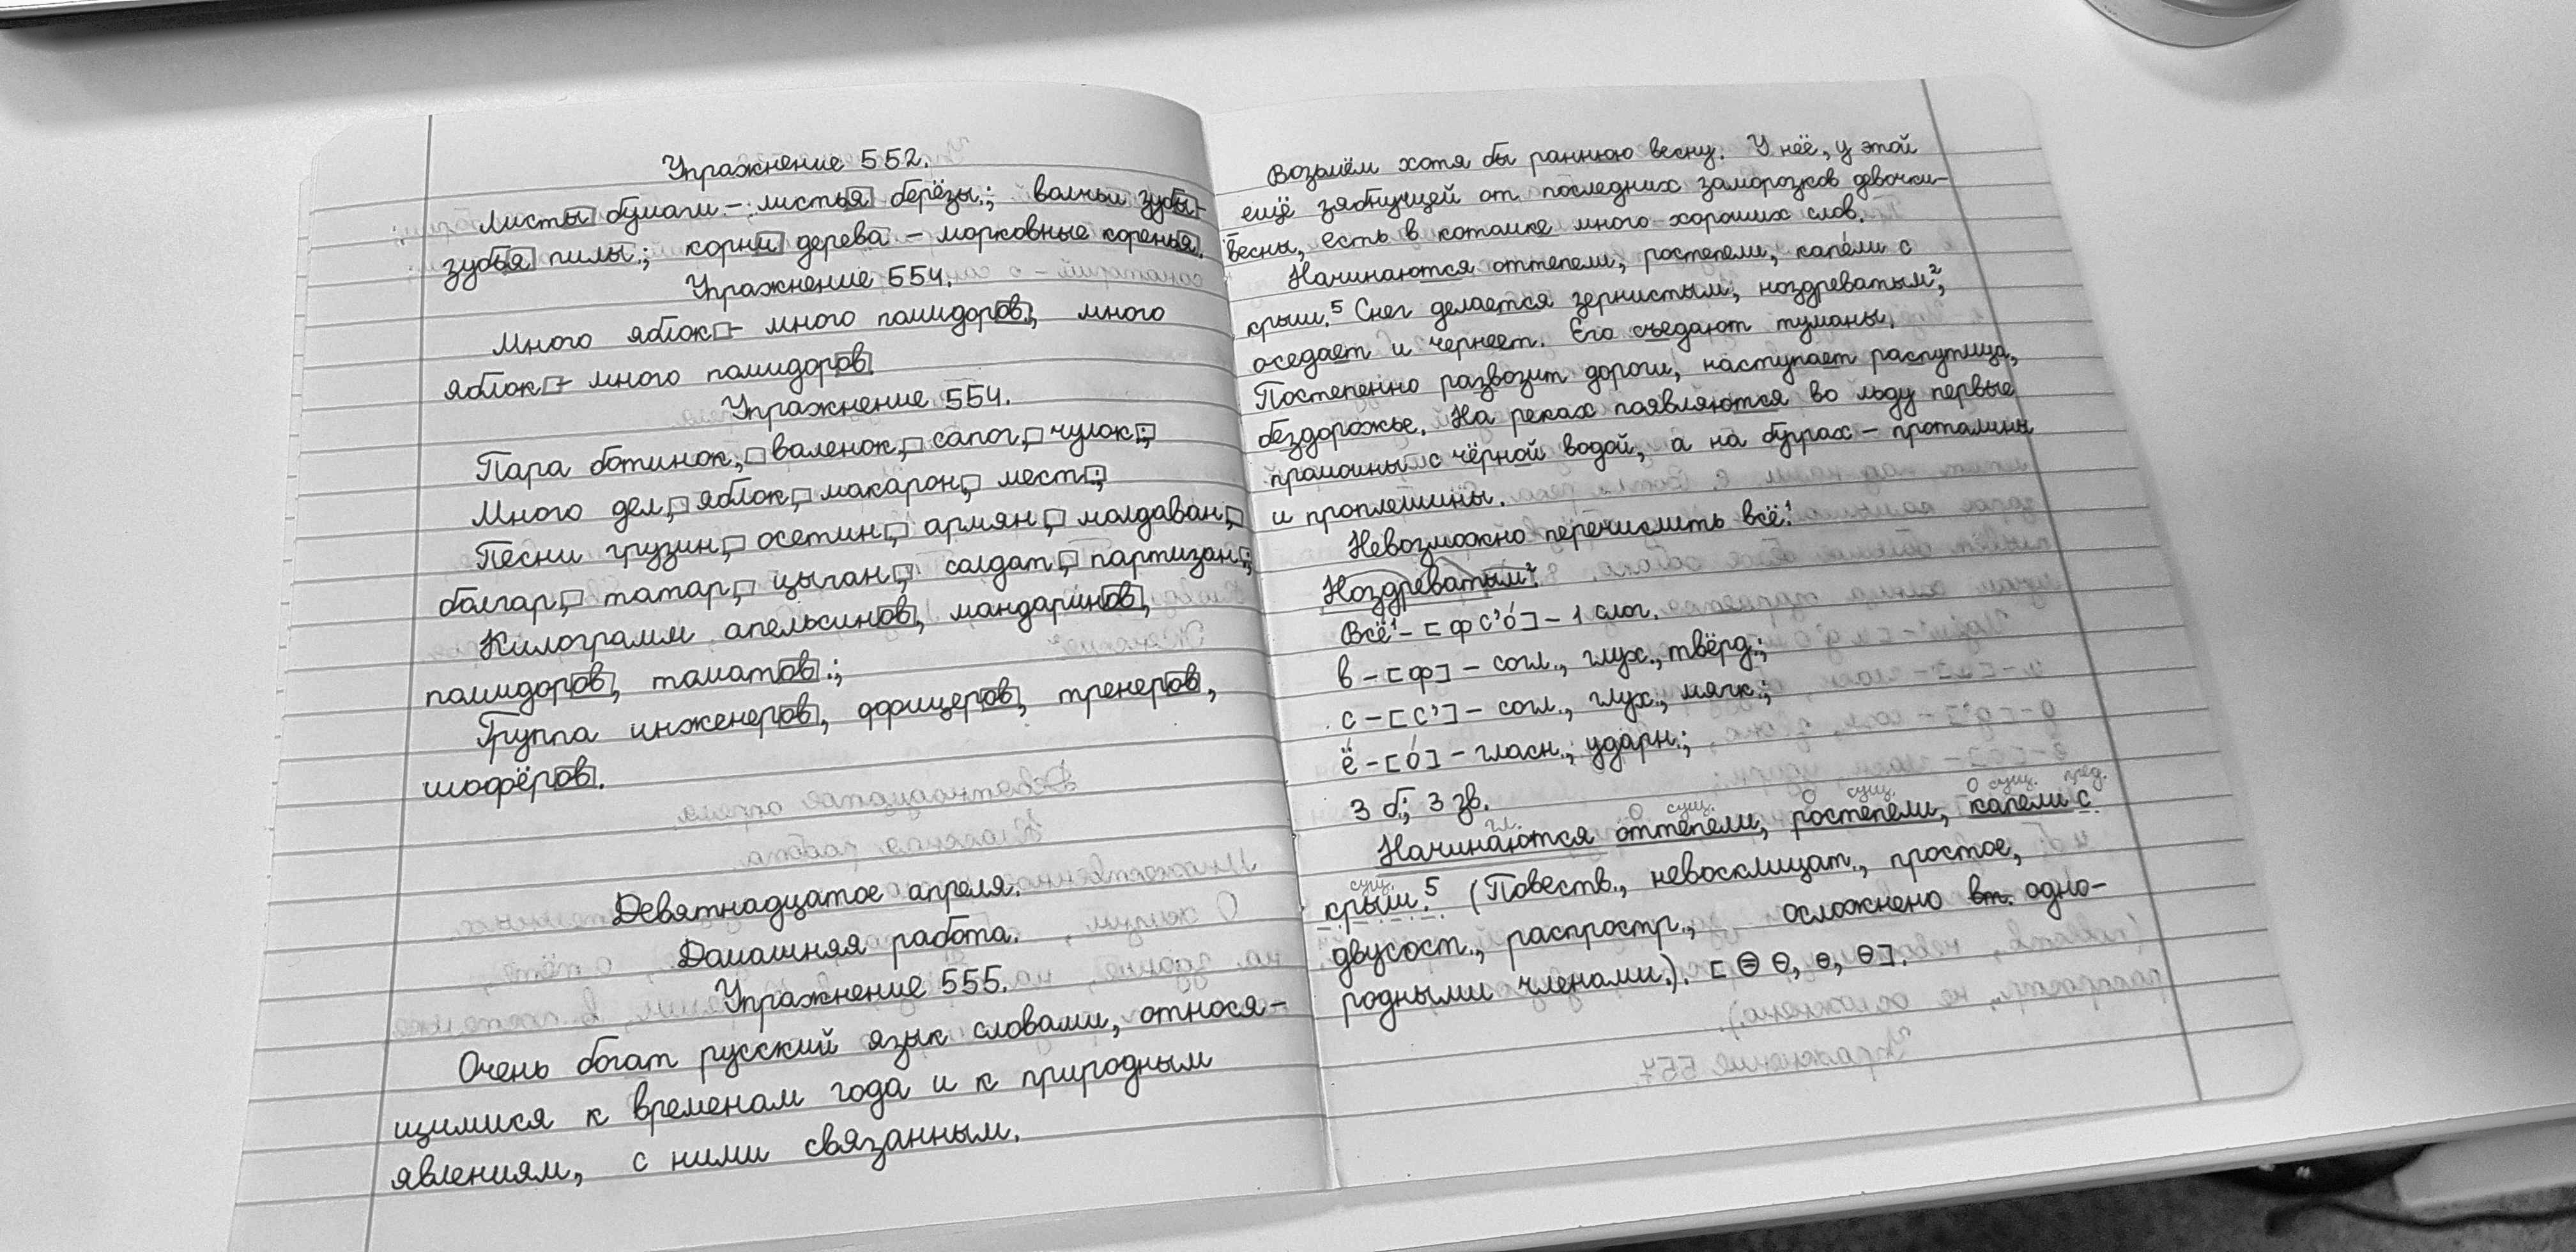 Упражнение 552.
Листы бумаги – листья берёзы.; волчьи зубы –
зубья пилы.; корни дерева – морковные коренья.
Упражнение 554.
Много яблок – много помидоров, много
яблок – много помидоров.
Упражнение 554.
Пара ботинок, валенок, сапог, чулок;
Много дел, яблок, макарон, мест;
Песни грузин, осетин, армян, молдаван,
болгар, татар, цыган, солдат, партизан;
Килограмм апельсинов, мандаринов,
помидоров, томатов.;
Группа инженеров, офицеров, тренеров,
шофёров.
Девятнадцатое апреля.
Домашняя работа.
Упражнение 555.
Очень богат русский язык словами, относя-
щимися к временам года и к природным
явлениям, с ними связанным.
Возьмём хотя бы раннюю весну. У неё, у этой
ещё зябнущей от последних заморозков девочки-
весны, есть в котомке много хороших слов.
Начинаются оттепели, ростепели, капели с
крыш.⁵ Снег делается зернистым, ноздреватым²,
оседает и чернеет. Его съедают туманы.
Постепенно развозит дороги, наступает распутица,
бездорожье. На реках появляются во льду первые
промоины с чёрной водой, а на буграх – проталины
и проплешины.
Невозможно перечислить всё!¹
Ноздреватым².
Всё¹ – [фс'о́] – 1 слог.
в – [ф] – согл., глух., твёрд.;
с – [с'] – согл., глух., мягк.;
ё – [о́] – гласн., ударн.;
3 б; 3 зв.
гл. О сущ. О сущ. О сущ. пред.
Начинаются оттепели, ростепели, капели с
сущ.
крыш.⁵ (Повеств., невосклицат., простое,
двусост., распростр., осложнено вт. одно-
родными членами.). [⊖ ⊖, ⊖, ⊖].